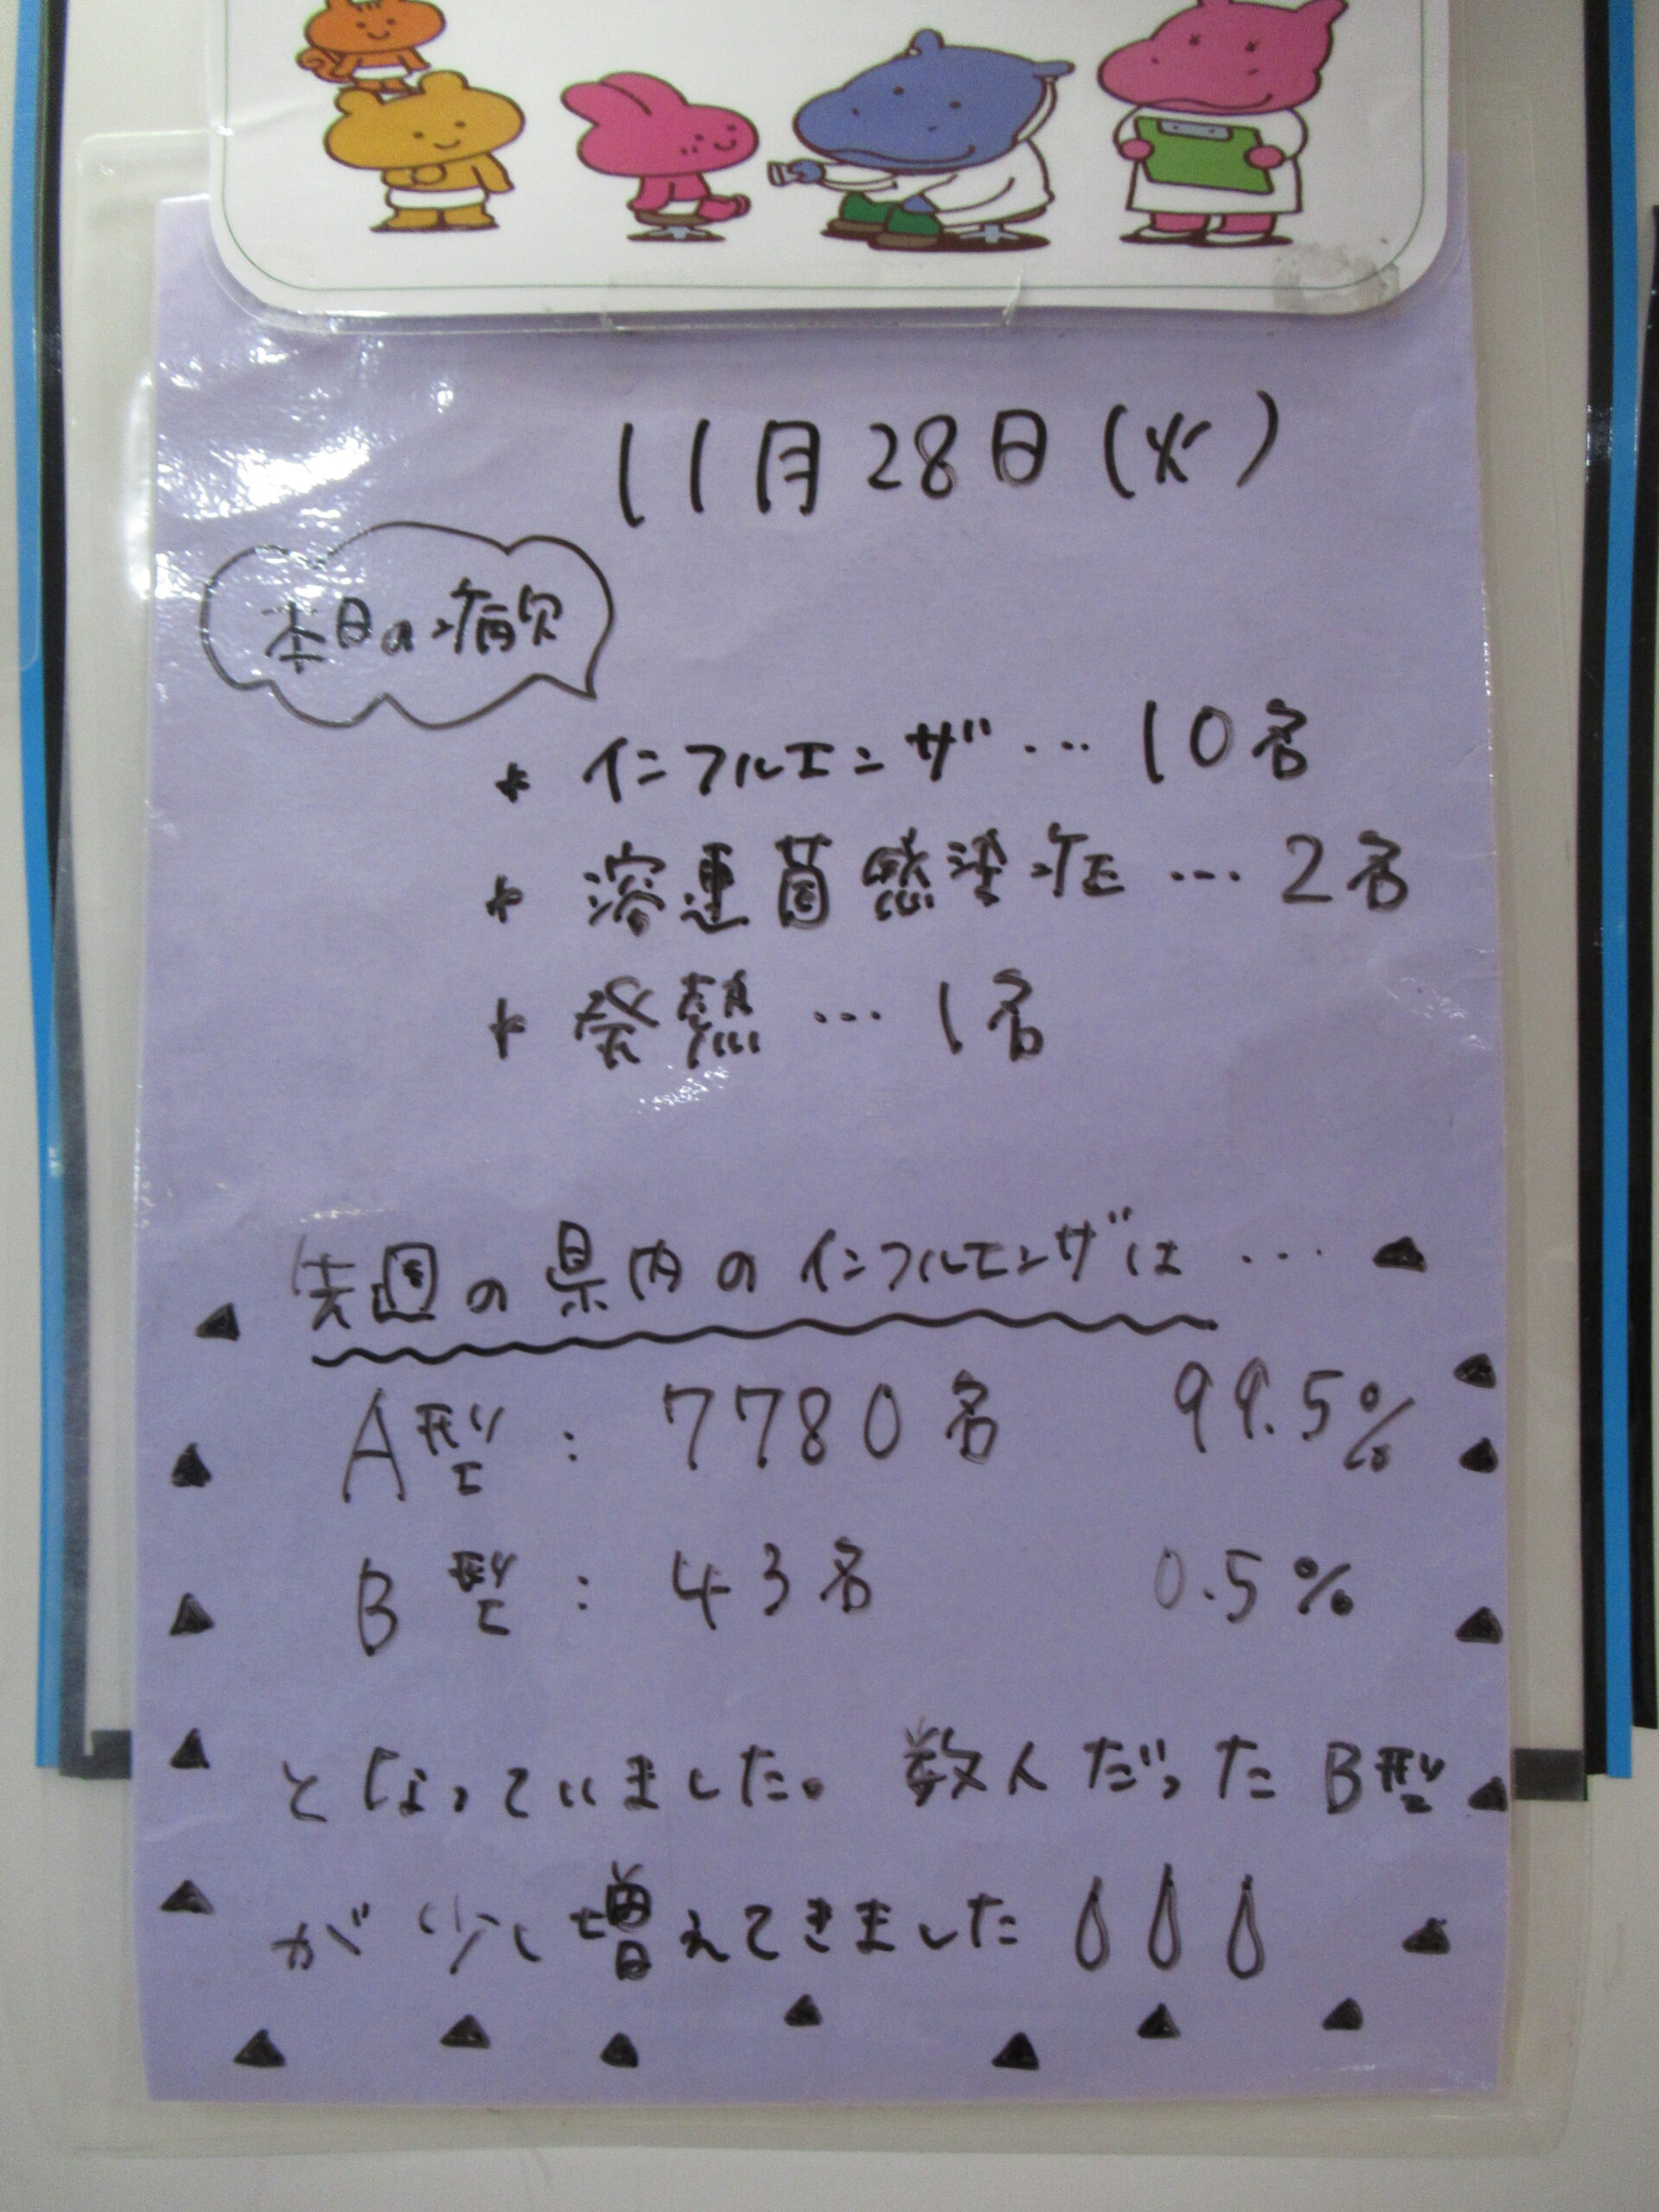 11月28日(火)
本日の病欠
* インフルエンザ … 10名
* 溶連菌感染症 … 2名
* 発熱 … 1名
先週の県内のインフルエンザは …
A型 : 7780名 99.5%
B型 : 43名 0.5%
となっていました。数人だったB型
が少し増えてきました